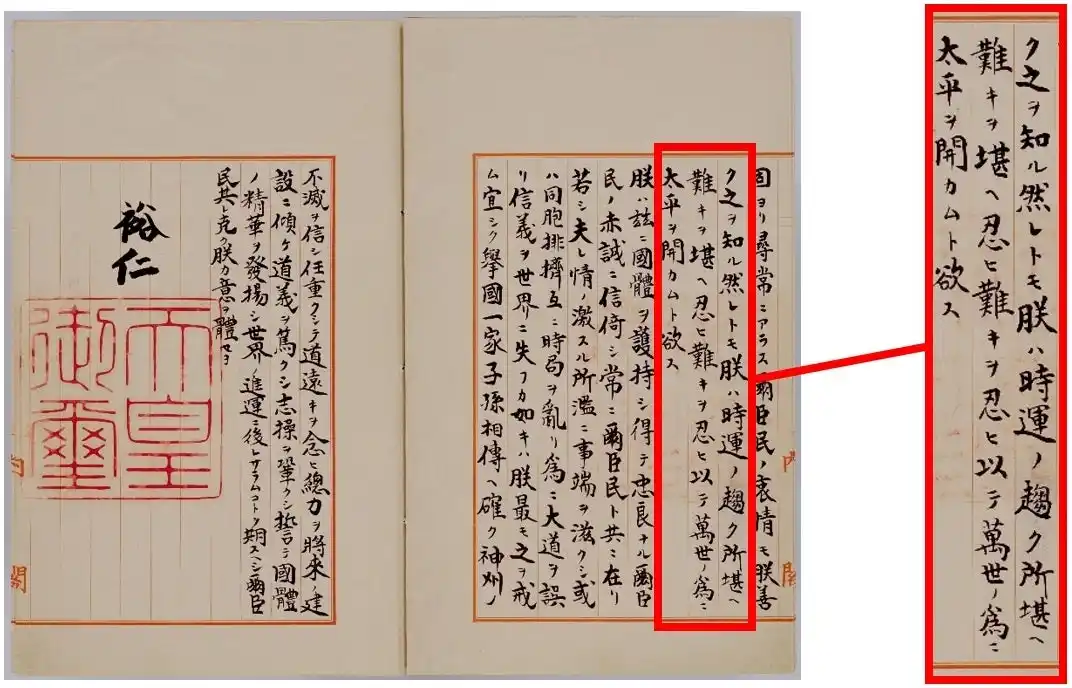 固ヨリ尋常ニアラス爾臣民ノ衷情モ朕善
ク之ヲ知ル然レトモ朕ハ時運ノ趨ク所堪ヘ
難キヲ堪ヘ忍ヒ難キヲ忍ヒ以テ萬世ノ爲ニ
太平ヲ開カムト欲ス
朕ハ茲ニ國體ヲ護持シ得テ忠良ナル爾臣
民ノ赤誠ニ信倚シ常ニ爾臣民ト共ニ在リ
若シ夫レ情ノ激スル所濫ニ事端ヲ滋クシ或
ハ同胞排擠互ニ時局ヲ亂リ爲ニ大道ヲ誤
リ信義ヲ世界ニ失フカ如キハ朕最モ之ヲ戒
ム宜シク擧國一家子孫相傳ヘ確ク神州ノ
内閣
不滅ヲ信シ任重クシテ道遠キヲ念ヒ總力ヲ將來ノ建
設ニ傾ケ道義ヲ篤クシ志操ヲ鞏クシ誓テ國體
ノ精華ヲ發揚シ世界ノ進運ニ後レサラムコトヲ期スヘシ爾臣
民其レ克ク朕カ意ヲ體セヨ
裕仁
天皇
御璽
内閣
ク之ヲ知ル然レトモ朕ハ時運ノ趨ク所堪ヘ
難キヲ堪ヘ忍ヒ難キヲ忍ヒ以テ萬世ノ爲ニ
太平ヲ開カムト欲ス